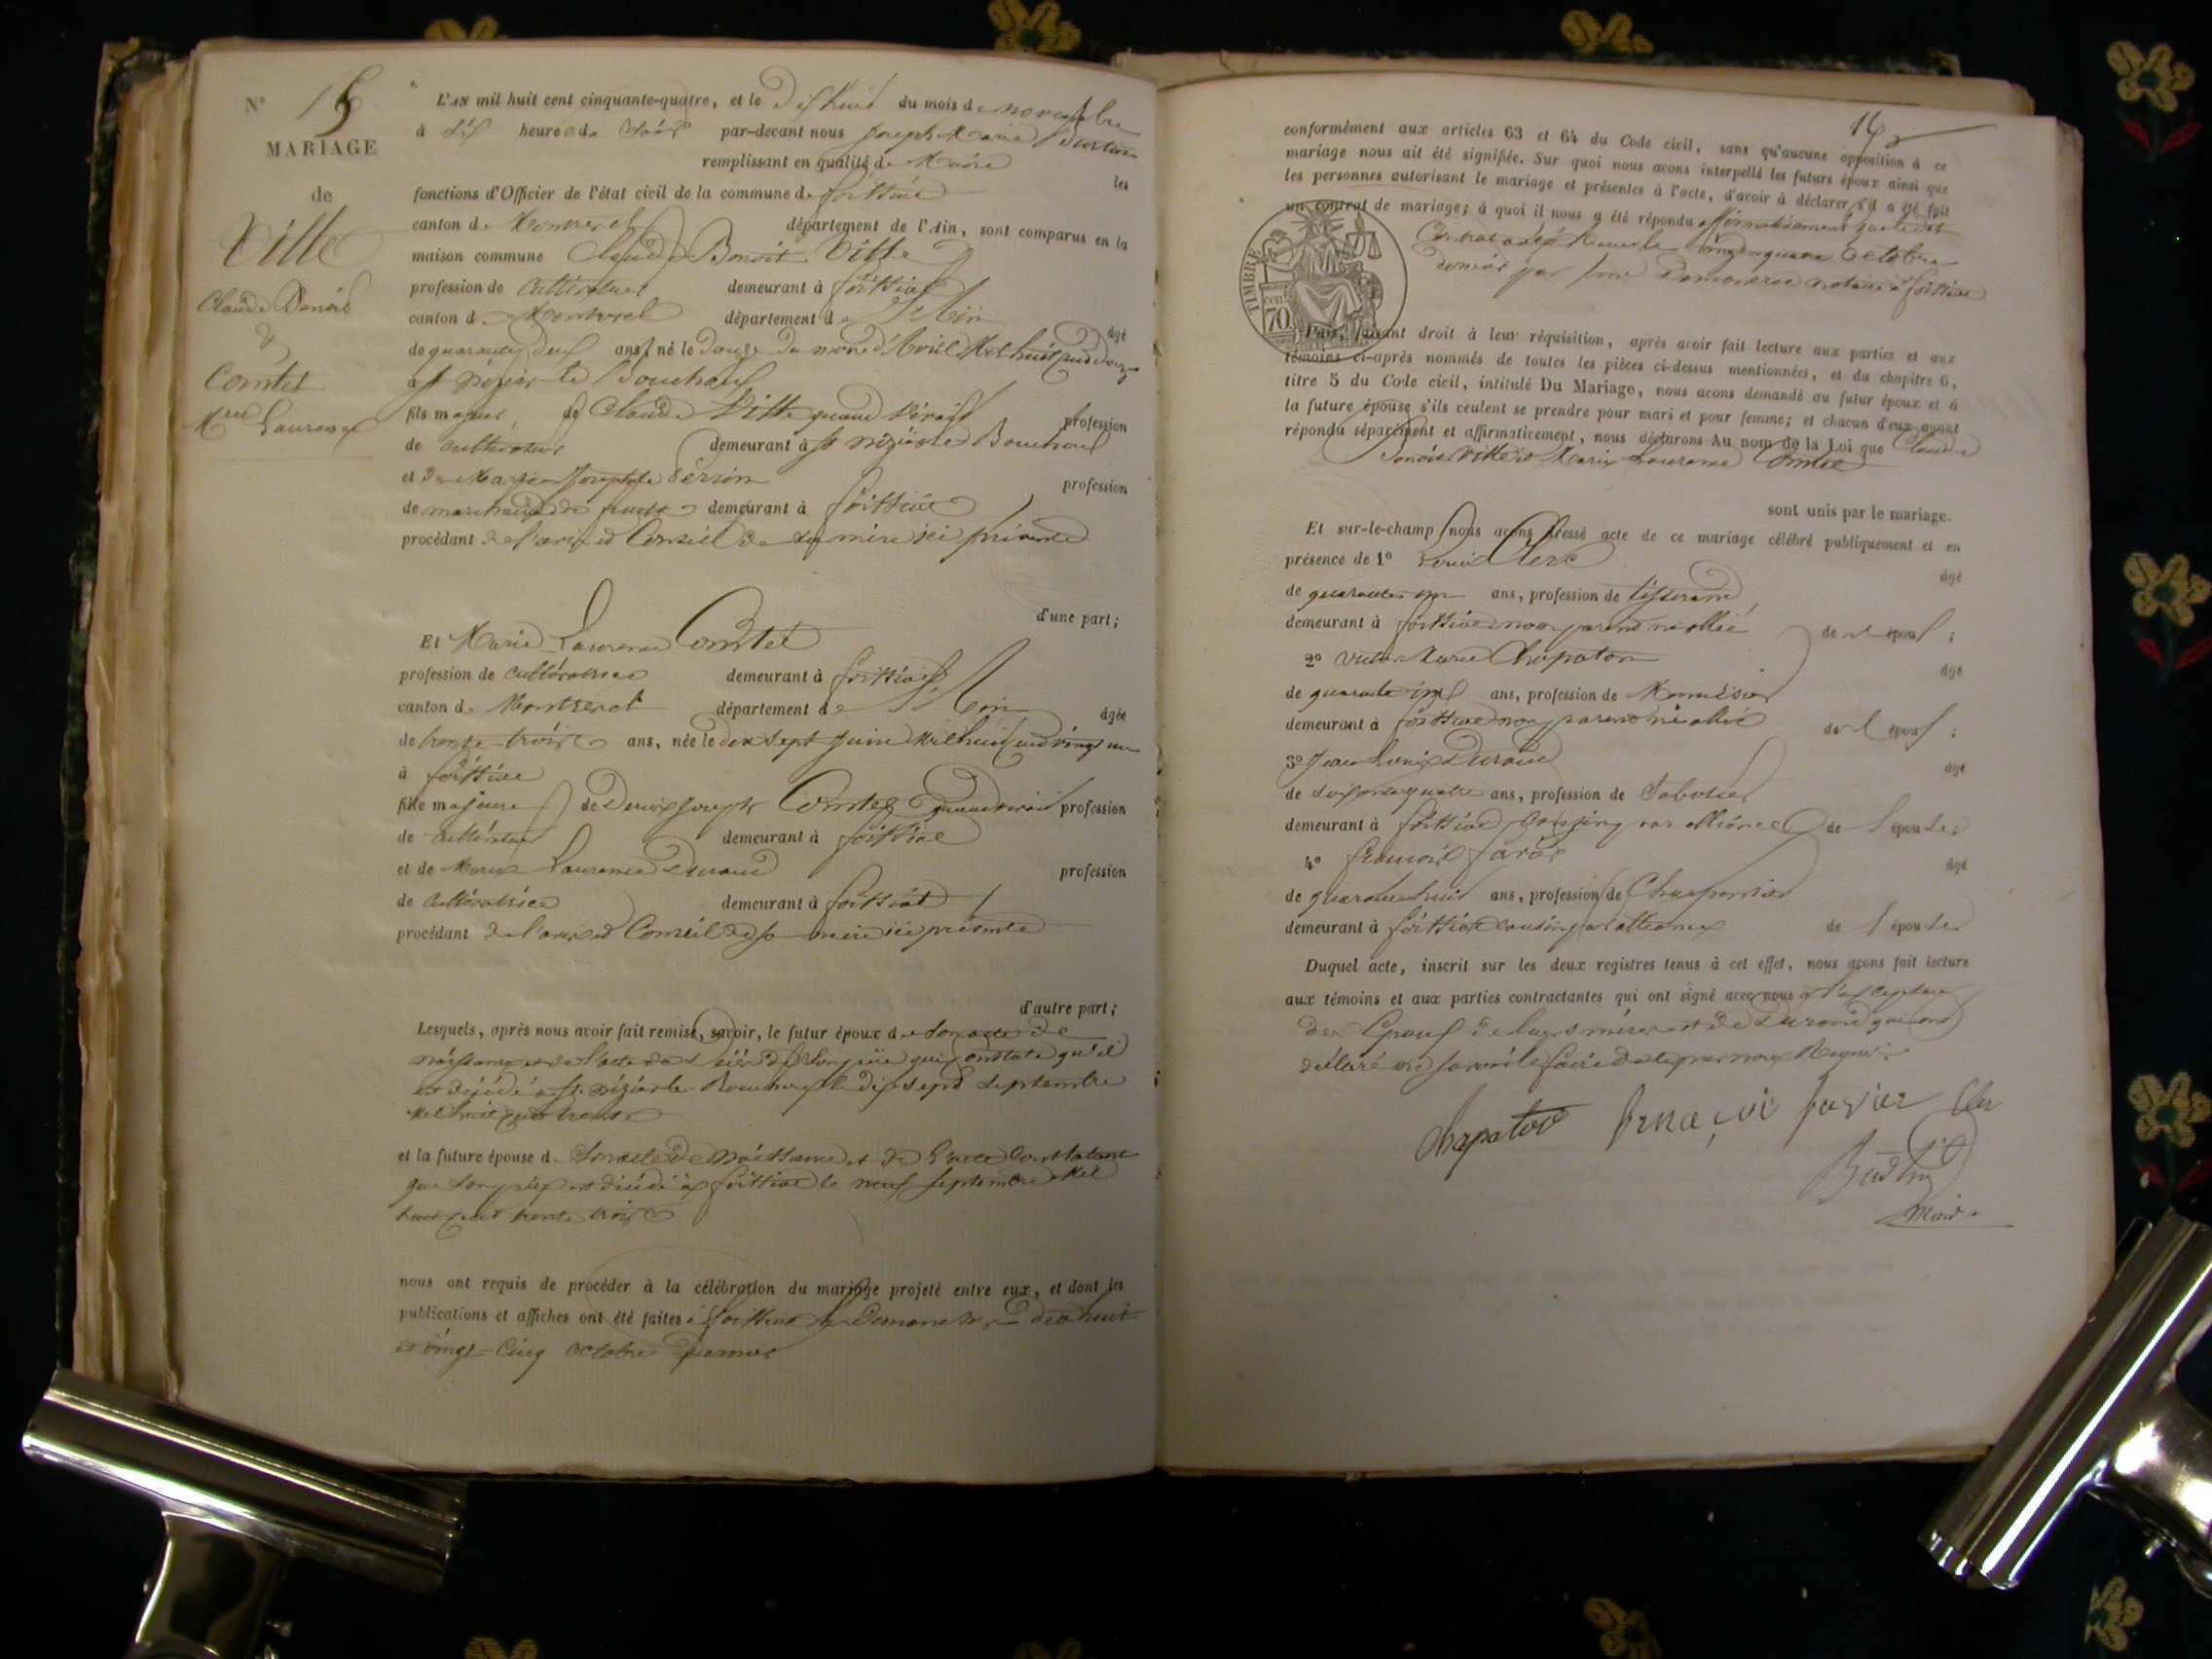 N° 15
MARIAGE
de
Vitte
Claude Benoit
&
Comtet
Mie Laurence
L'AN mil huit cent cinquante-quatre, et le dix huit du mois de novembre
à six heures du soir par-devant nous Joseph Marie
remplissant en qualité de Maire les
fonctions d'Officier de l'état civil de la commune de foissiat
canton de Montrevel département de l'Ain, sont comparus en la
maison commune Claude Benoit Vitte
profession de cultivateur demeurant à foissiat
canton de Montrevel département de l'Ain âgé
de quarante deux ans, né le douze du mois d'Avril Mil huit cent douze
à St Nizier-le Bouchoux
fils majeur de Claude Vitte quand vivait profession
de cultivateur demeurant à St nizier le Bouchoux
et de Marie Josephte Perrin profession
de marchande de demeurant à foissiat
procédant de l'avis et Conseil de sa mère ici présente
d'une part;
Et Marie Laurence Comtet
profession de cultivatrice demeurant à foissiat
canton de Montrevel département de l'Ain âgée
de trente-trois ans, née le dix sept juin Mil huit cent vingt un
à foissiat
fille majeure de Denis Joseph Comtet quand vivait profession
de cultivateur demeurant à foissiat
et de Marie Laurence Durand profession
de cultivatrice demeurant à foissiat
procédant de l'avis et Conseil de sa mère ici présente
d'autre part;
Lesquels, après nous avoir fait remise, savoir, le futur époux de son acte de
naissance et de l'acte de décès de son père qui constate qu'il
est décédé à St. Nizier le Bouchoux le dix sept septembre
Mil huit cent trente
et la future épouse de Son acte de naissance et de l'acte constatant
que son père est décédé à foissiat le neuf septembre Mil
huit cent trente trois
nous ont requis de procéder à la célébration du mariage projeté entre eux, et dont les
publications et affiches ont été faites à foissiat les Dimanches dix huit
et vingt-Cinq octobre dernier
16
conformément aux articles 63 et 64 du Code civil, sans qu'aucune opposition à ce
mariage nous ait été signifiée. Sur quoi nous avons interpellé les futurs époux ainsi que
les personnes autorisant le mariage et présentes à l'acte, d'avoir à déclarer s'il a été fait
un contrat de mariage; à quoi il nous a été répondu affirmativement que le dit
Contrat a été octobre
dernier par notaire à foissiat
TIMBRE
70
Puis, faisant droit à leur réquisition, après avoir fait lecture aux parties et aux
témoins ci-après nommés de toutes les pièces ci-dessus mentionnées, et du chapitre 6,
titre 5 du Code civil, intitulé Du Mariage, nous avons demandé au futur époux et à
la future épouse s'ils veulent se prendre pour mari et pour femme; et chacun d'eux ayant
répondu séparément et affirmativement, nous déclarons Au nom de la Loi que Claude
Benoit Vitte et Marie Laurence Comtet
sont unis par le mariage.
Et sur-le-champ nous avons dressé acte de ce mariage célébré publiquement et en
présence de 1° Louis Clerc âgé
de quarante ans, profession de tisserand
demeurant à foissiat non parent ni allié de l'époux;
2° Marie Chapaton âgé
de quarante ans, profession de Menuisier
demeurant à foissiat non parent ni allié de l'époux;
3° Jean Louis Durand âgé
de soixante quatre ans, profession de Sabotier
demeurant à foissiat cousin par alliance de l'épouse
4° francois âgé
de quarante huit ans, profession de Charpentier
demeurant à foissiat cousin par alliance de l'épouse
Duquel acte, inscrit sur les deux registres tenus à cet effet, nous avons fait lecture
aux témoins et aux parties contractantes qui ont signé avec nous à l'exception
des Epoux de leurs mères et de Durand qui ont
déclaré ne savoir le faire de ce par nous Requis
Chapaton françoi Clerc
Maire